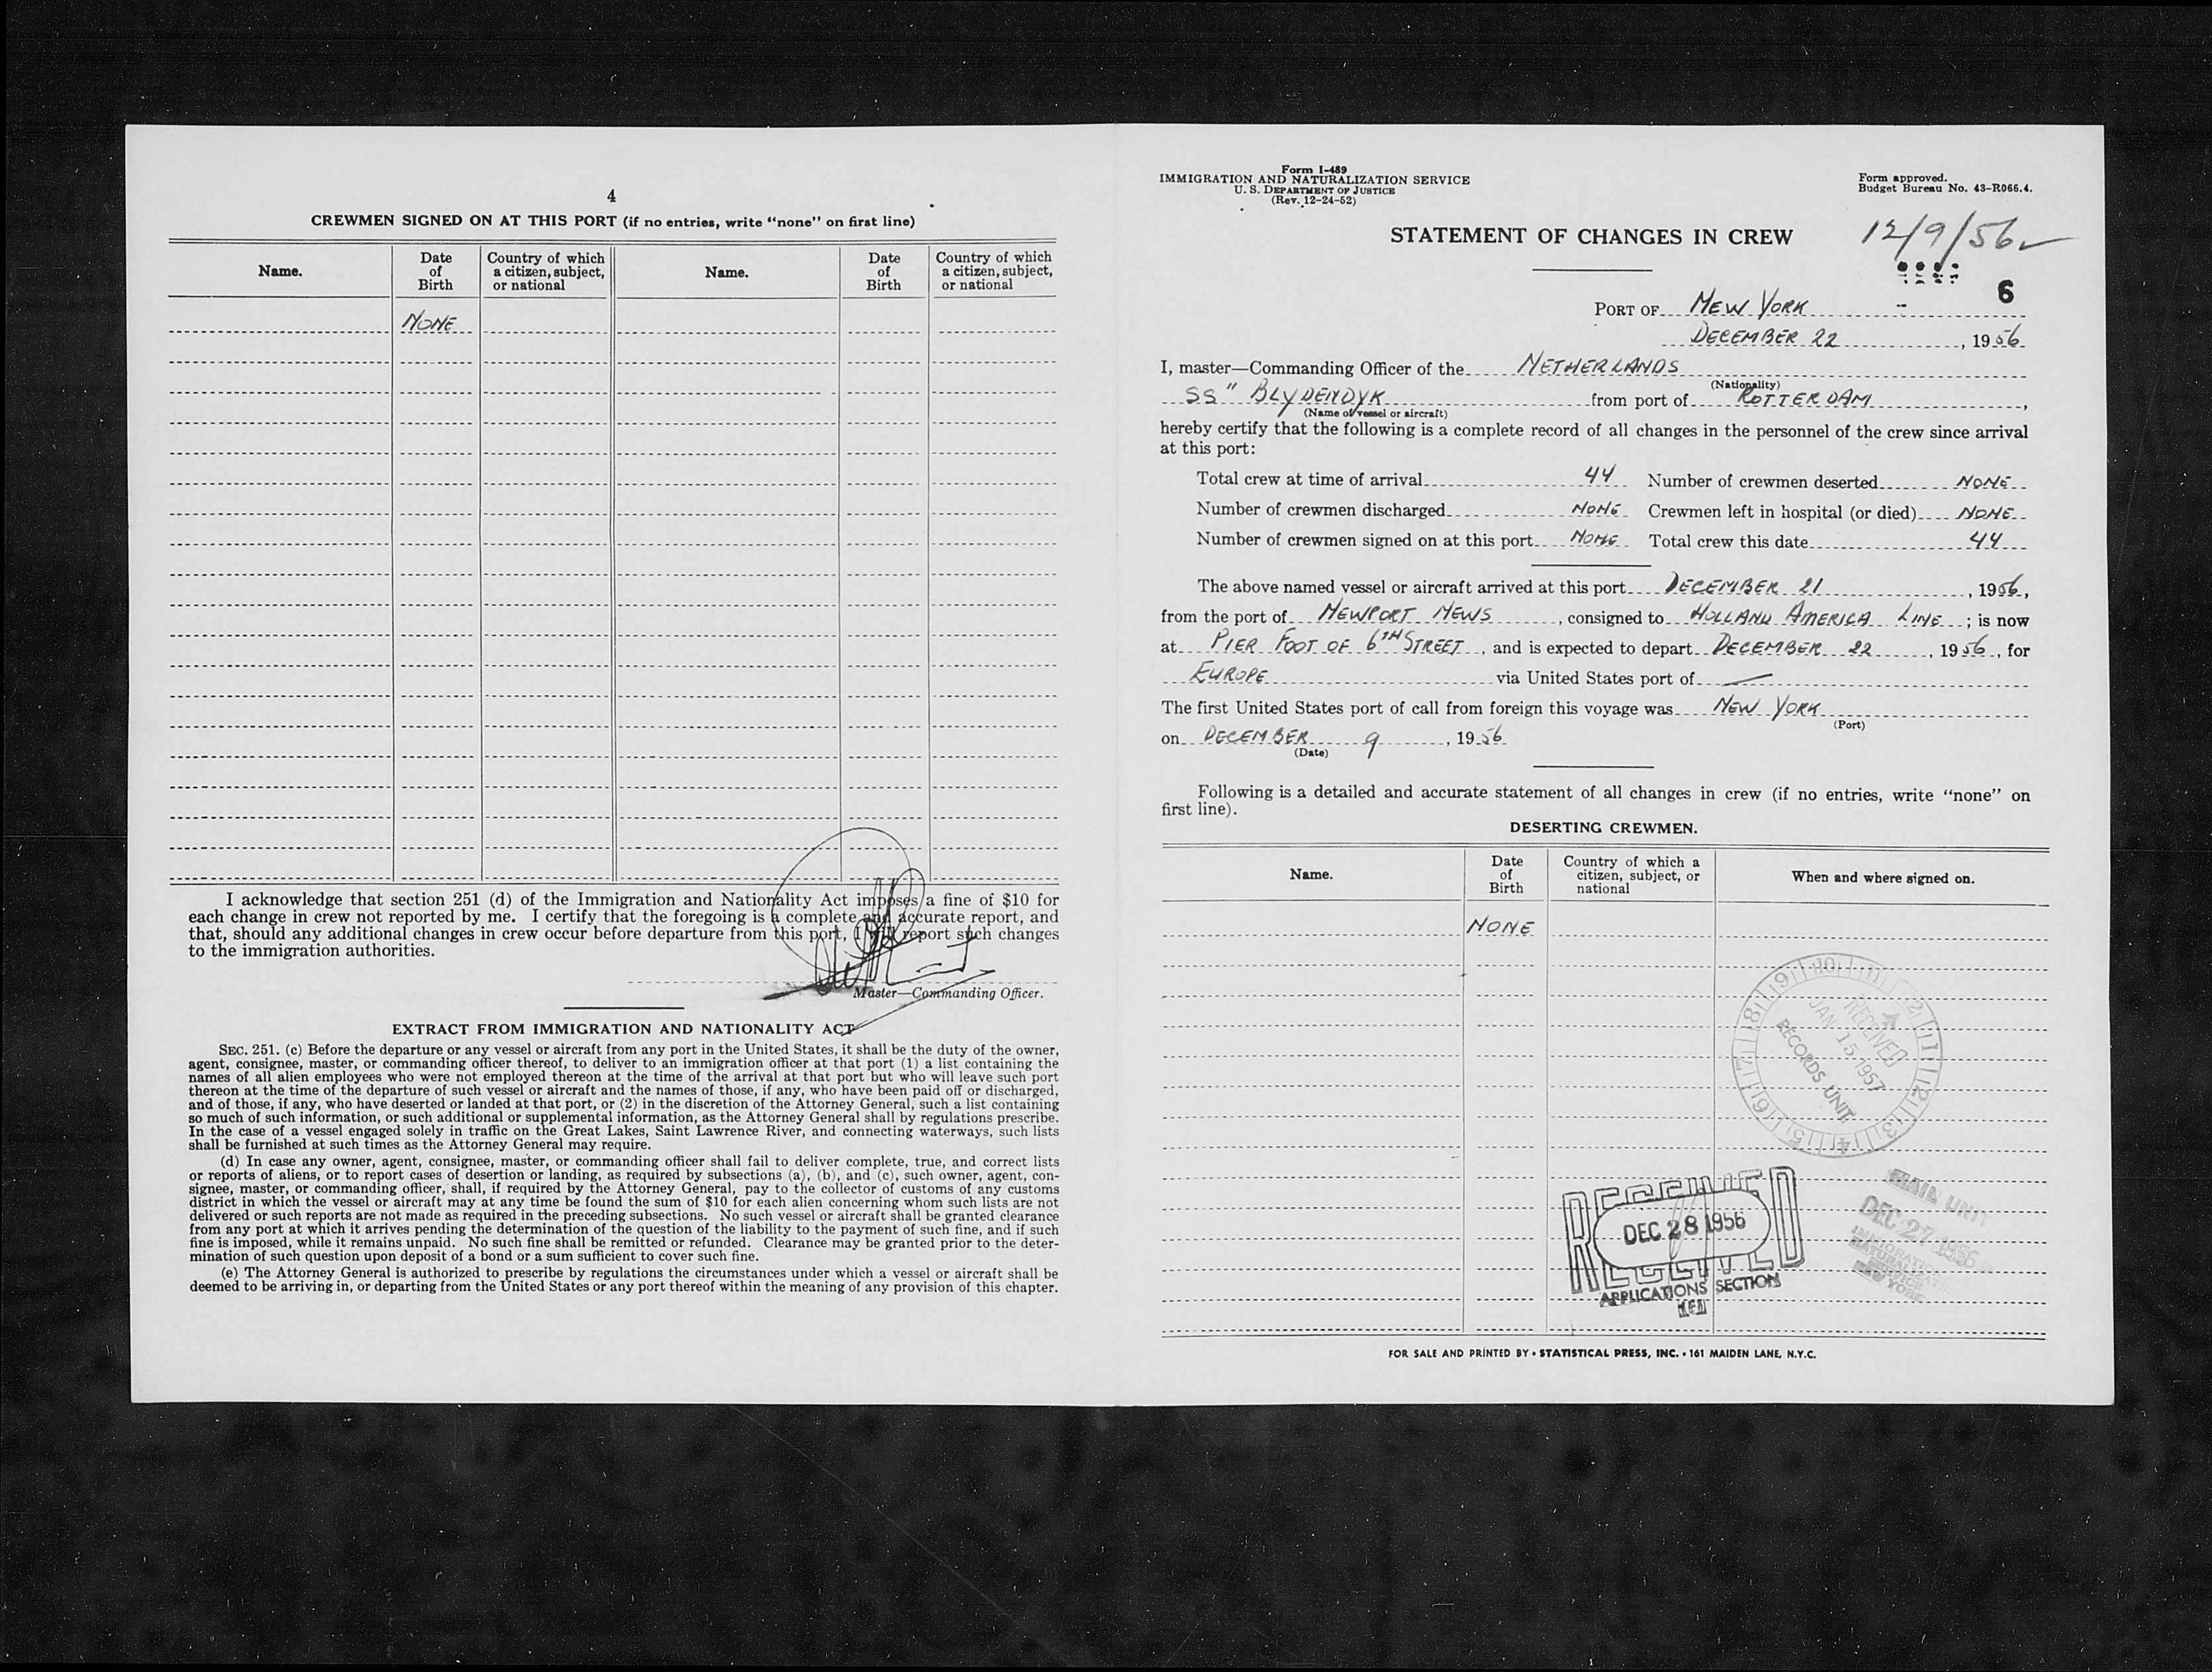 4
CREWMEN SIGNED ON AT THIS PORT (if no entries, write "none" on first line)
Name. Date of Birth Country of which a citizen, subject, or national Name. Date of Birth Country of which a citizen, subject, or national
NONE
I acknowledge that section 251 (d) of the Immigration and Nationality Act imposes a fine of $10 for
each change in crew not reported by me. I certify that the foregoing is a complete and accurate report, and
that, should any additional changes in crew occur before departure from this port, I will report such changes
to the immigration authorities.
Master—Commanding Officer.
EXTRACT FROM IMMIGRATION AND NATIONALITY ACT
SEC. 251. (c) Before the departure or any vessel or aircraft from any port in the United States, it shall be the duty of the owner,
agent, consignee, master, or commanding officer thereof, to deliver to an immigration officer at that port (1) a list containing the
names of all alien employees who were not employed thereon at the time of the arrival at that port but who will leave such port
thereon at the time of the departure of such vessel or aircraft and the names of those, if any, who have been paid off or discharged,
and of those, if any, who have deserted or landed at that port, or (2) in the discretion of the Attorney General, such a list containing
so much of such information, or such additional or supplemental information, as the Attorney General shall by regulations prescribe.
In the case of a vessel engaged solely in traffic on the Great Lakes, Saint Lawrence River, and connecting waterways, such lists
shall be furnished at such times as the Attorney General may require.
(d) In case any owner, agent, consignee, master, or commanding officer shall fail to deliver complete, true, and correct lists
or reports of aliens, or to report cases of desertion or landing, as required by subsections (a), (b), and (c), such owner, agent, con-
signee, master, or commanding officer, shall, if required by the Attorney General, pay to the collector of customs of any customs
district in which the vessel or aircraft may at any time be found the sum of $10 for each alien concerning whom such lists are not
delivered or such reports are not made as required in the preceding subsections. No such vessel or aircraft shall be granted clearance
from any port at which it arrives pending the determination of the question of the liability to the payment of such fine, and if such
fine is imposed, while it remains unpaid. No such fine shall be remitted or refunded. Clearance may be granted prior to the deter-
mination of such question upon deposit of a bond or a sum sufficient to cover such fine.
(e) The Attorney General is authorized to prescribe by regulations the circumstances under which a vessel or aircraft shall be
deemed to be arriving in, or departing from the United States or any port thereof within the meaning of any provision of this chapter.
Form I-489
IMMIGRATION AND NATURALIZATION SERVICE
U. S. DEPARTMENT OF JUSTICE
(Rev. 12-24-52)
Form approved.
Budget Bureau No. 43-R066.4.
STATEMENT OF CHANGES IN CREW
12/9/56
6
PORT OF NEW YORK
DECEMBER 22, 1956
I, master—Commanding Officer of the NETHERLANDS
(Nationality)
SS" BLYDENDYK from port of ROTTERDAM,
(Name of vessel or aircraft)
hereby certify that the following is a complete record of all changes in the personnel of the crew since arrival
at this port:
Total crew at time of arrival 44 Number of crewmen deserted NONE
Number of crewmen discharged NONE Crewmen left in hospital (or died) NONE
Number of crewmen signed on at this port NONE Total crew this date 44
The above named vessel or aircraft arrived at this port DECEMBER 21, 1956,
from the port of NEWPORT NEWS, consigned to HOLLAND AMERICA LINE; is now
at PIER FOOT OF 6TH STREET, and is expected to depart DECEMBER 22, 1956, for
EUROPE via United States port of —
The first United States port of call from foreign this voyage was NEW YORK
(Port)
on DECEMBER 9, 1956
(Date)
Following is a detailed and accurate statement of all changes in crew (if no entries, write "none" on
first line).
DESERTING CREWMEN.
Name. Date of Birth Country of which a citizen, subject, or national When and where signed on.
NONE
9 10 11 12 1 2 3 4 5 6 7 8
RECEIVED
JAN 15 1957
RECORDS UNIT
RECEIVED
DEC 28 1956
APPLICATIONS SECTION
MAIL UNIT
DEC 27 1956
NEW YORK
FOR SALE AND PRINTED BY • STATISTICAL PRESS, INC. • 161 MAIDEN LANE, N.Y.C.